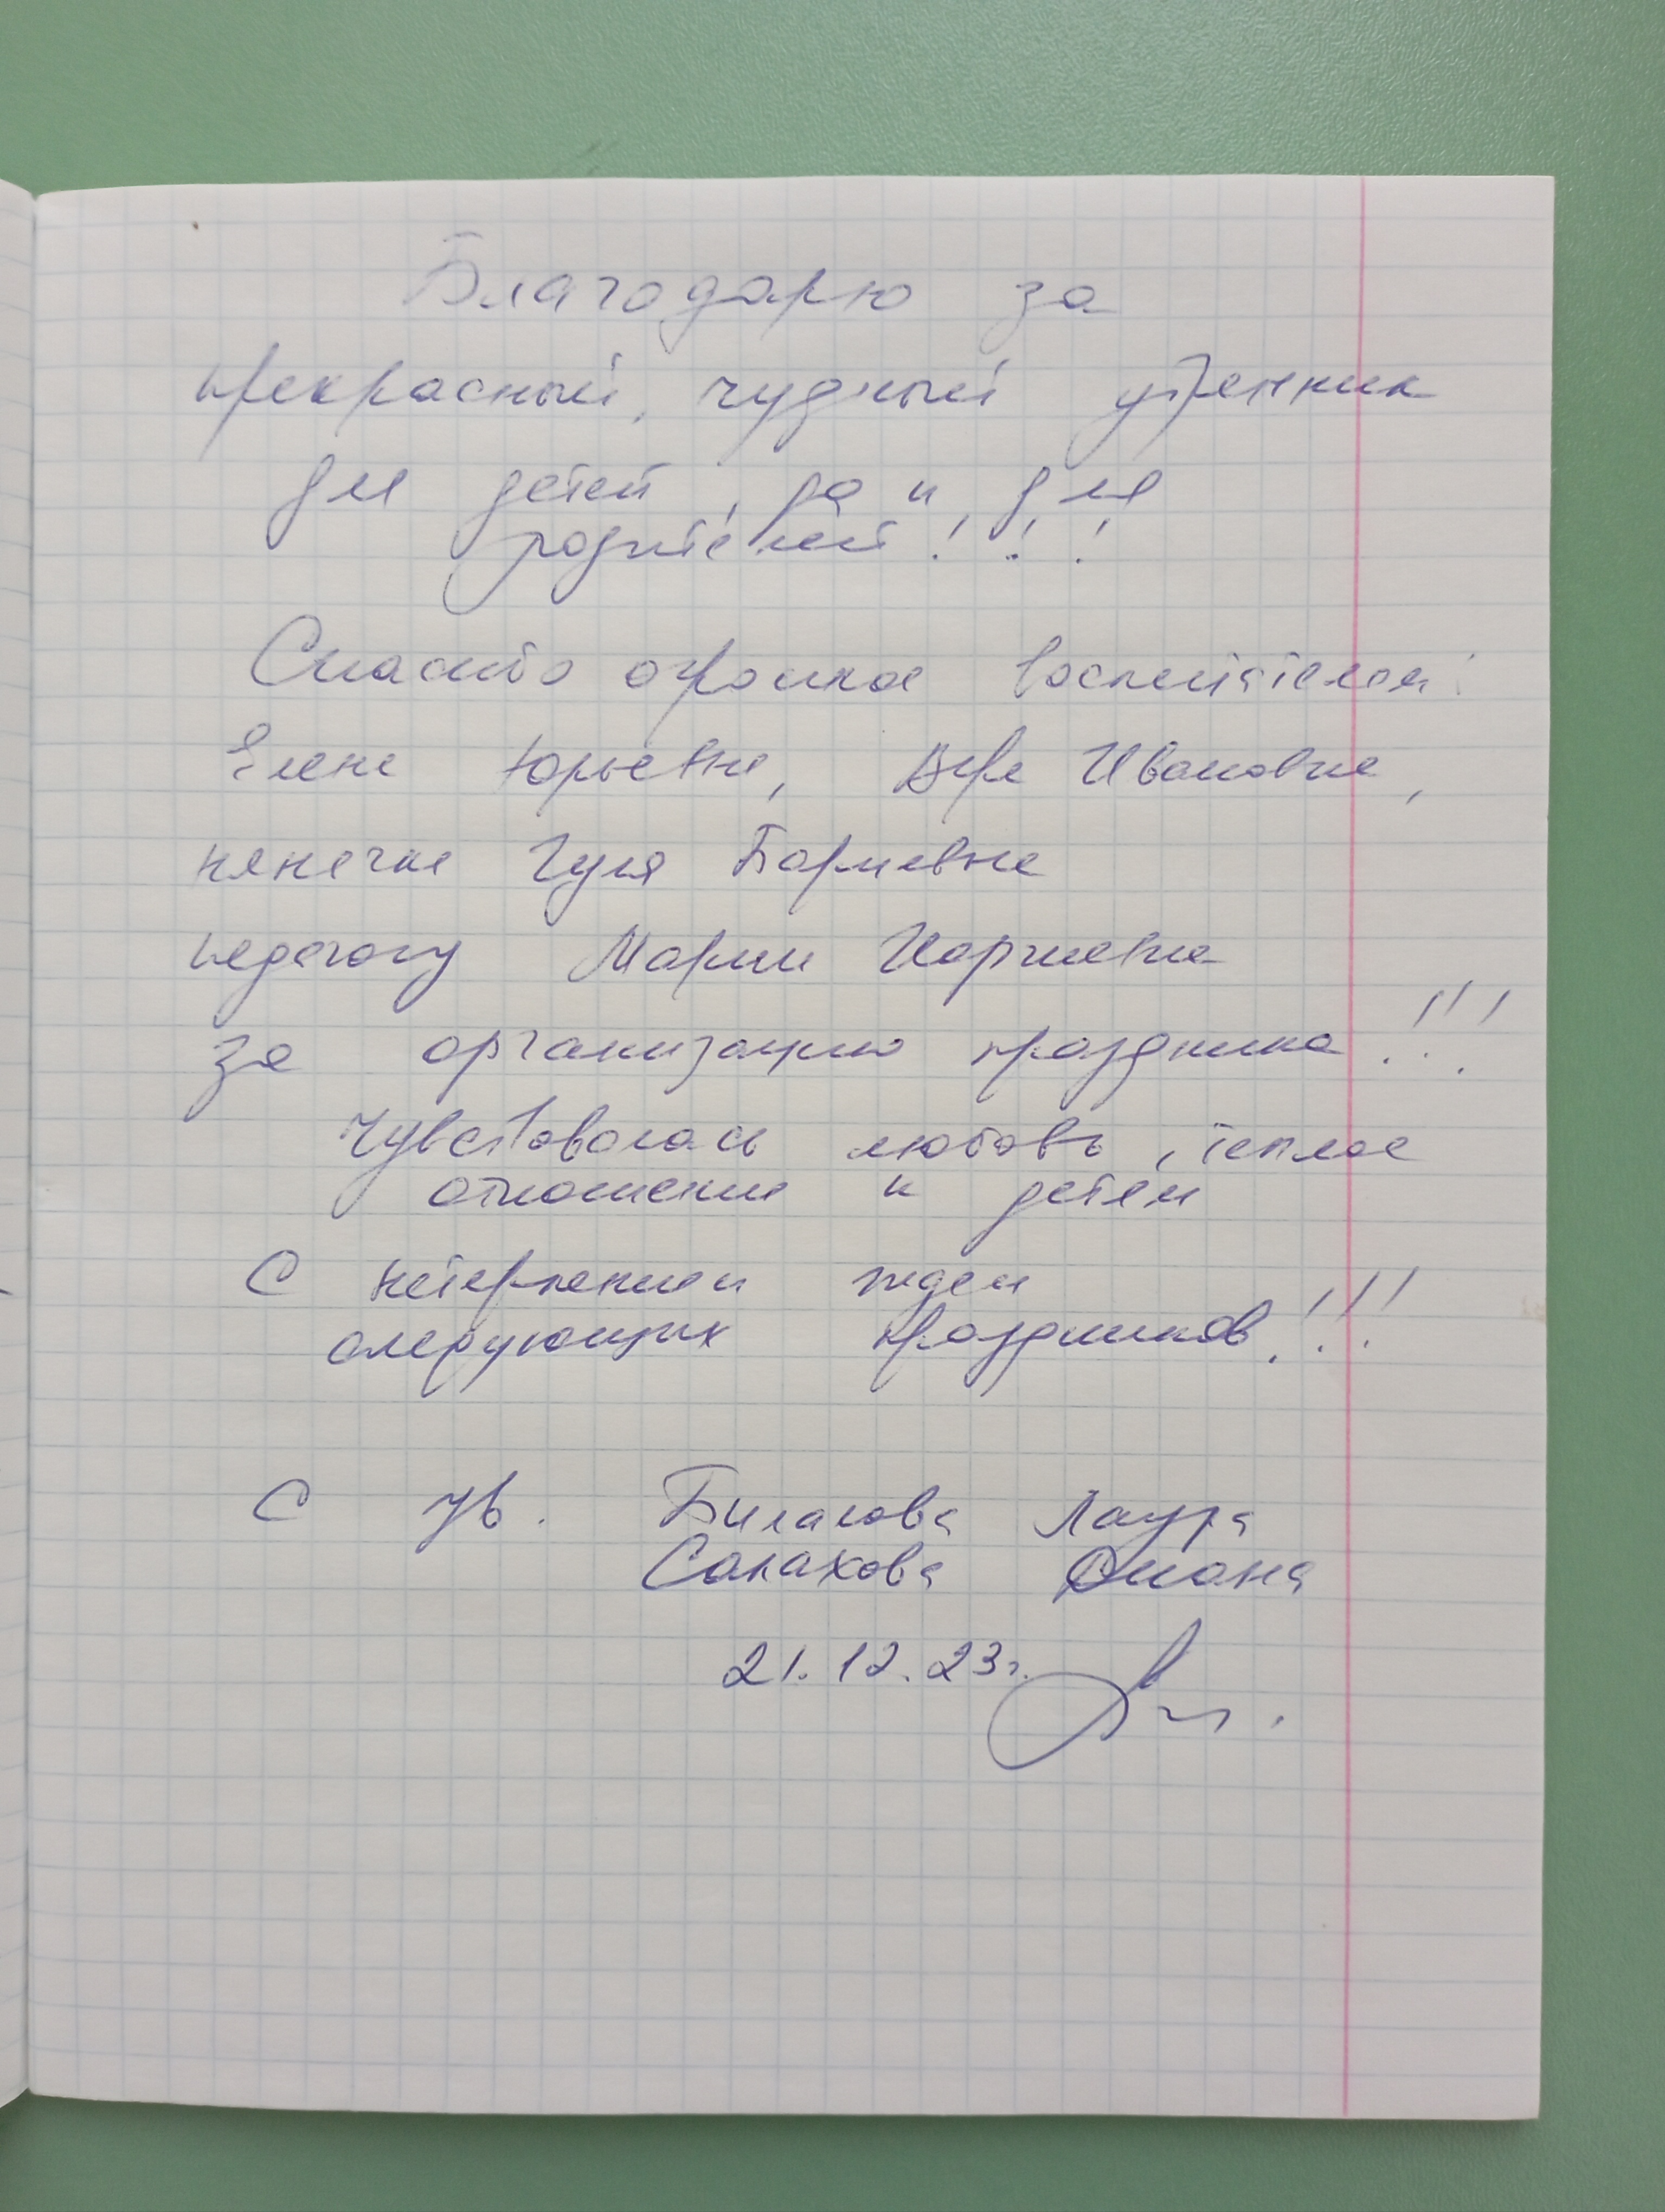 Благодарю за
прекрасный, чудный утренник
для детей, да и для
родителей!!!
Спасибо огромное воспитателям:
Елене Юрьевне, Вере Ивановне,
нянечке Гуля
педагогу Марии
за организацию праздника!!!
Чувствовалась любовь, теплое
отношение к детям
С нетерпением ждем
следующих праздников!!!
С ув. Лаура
Салахова Диана
21.12.23г.